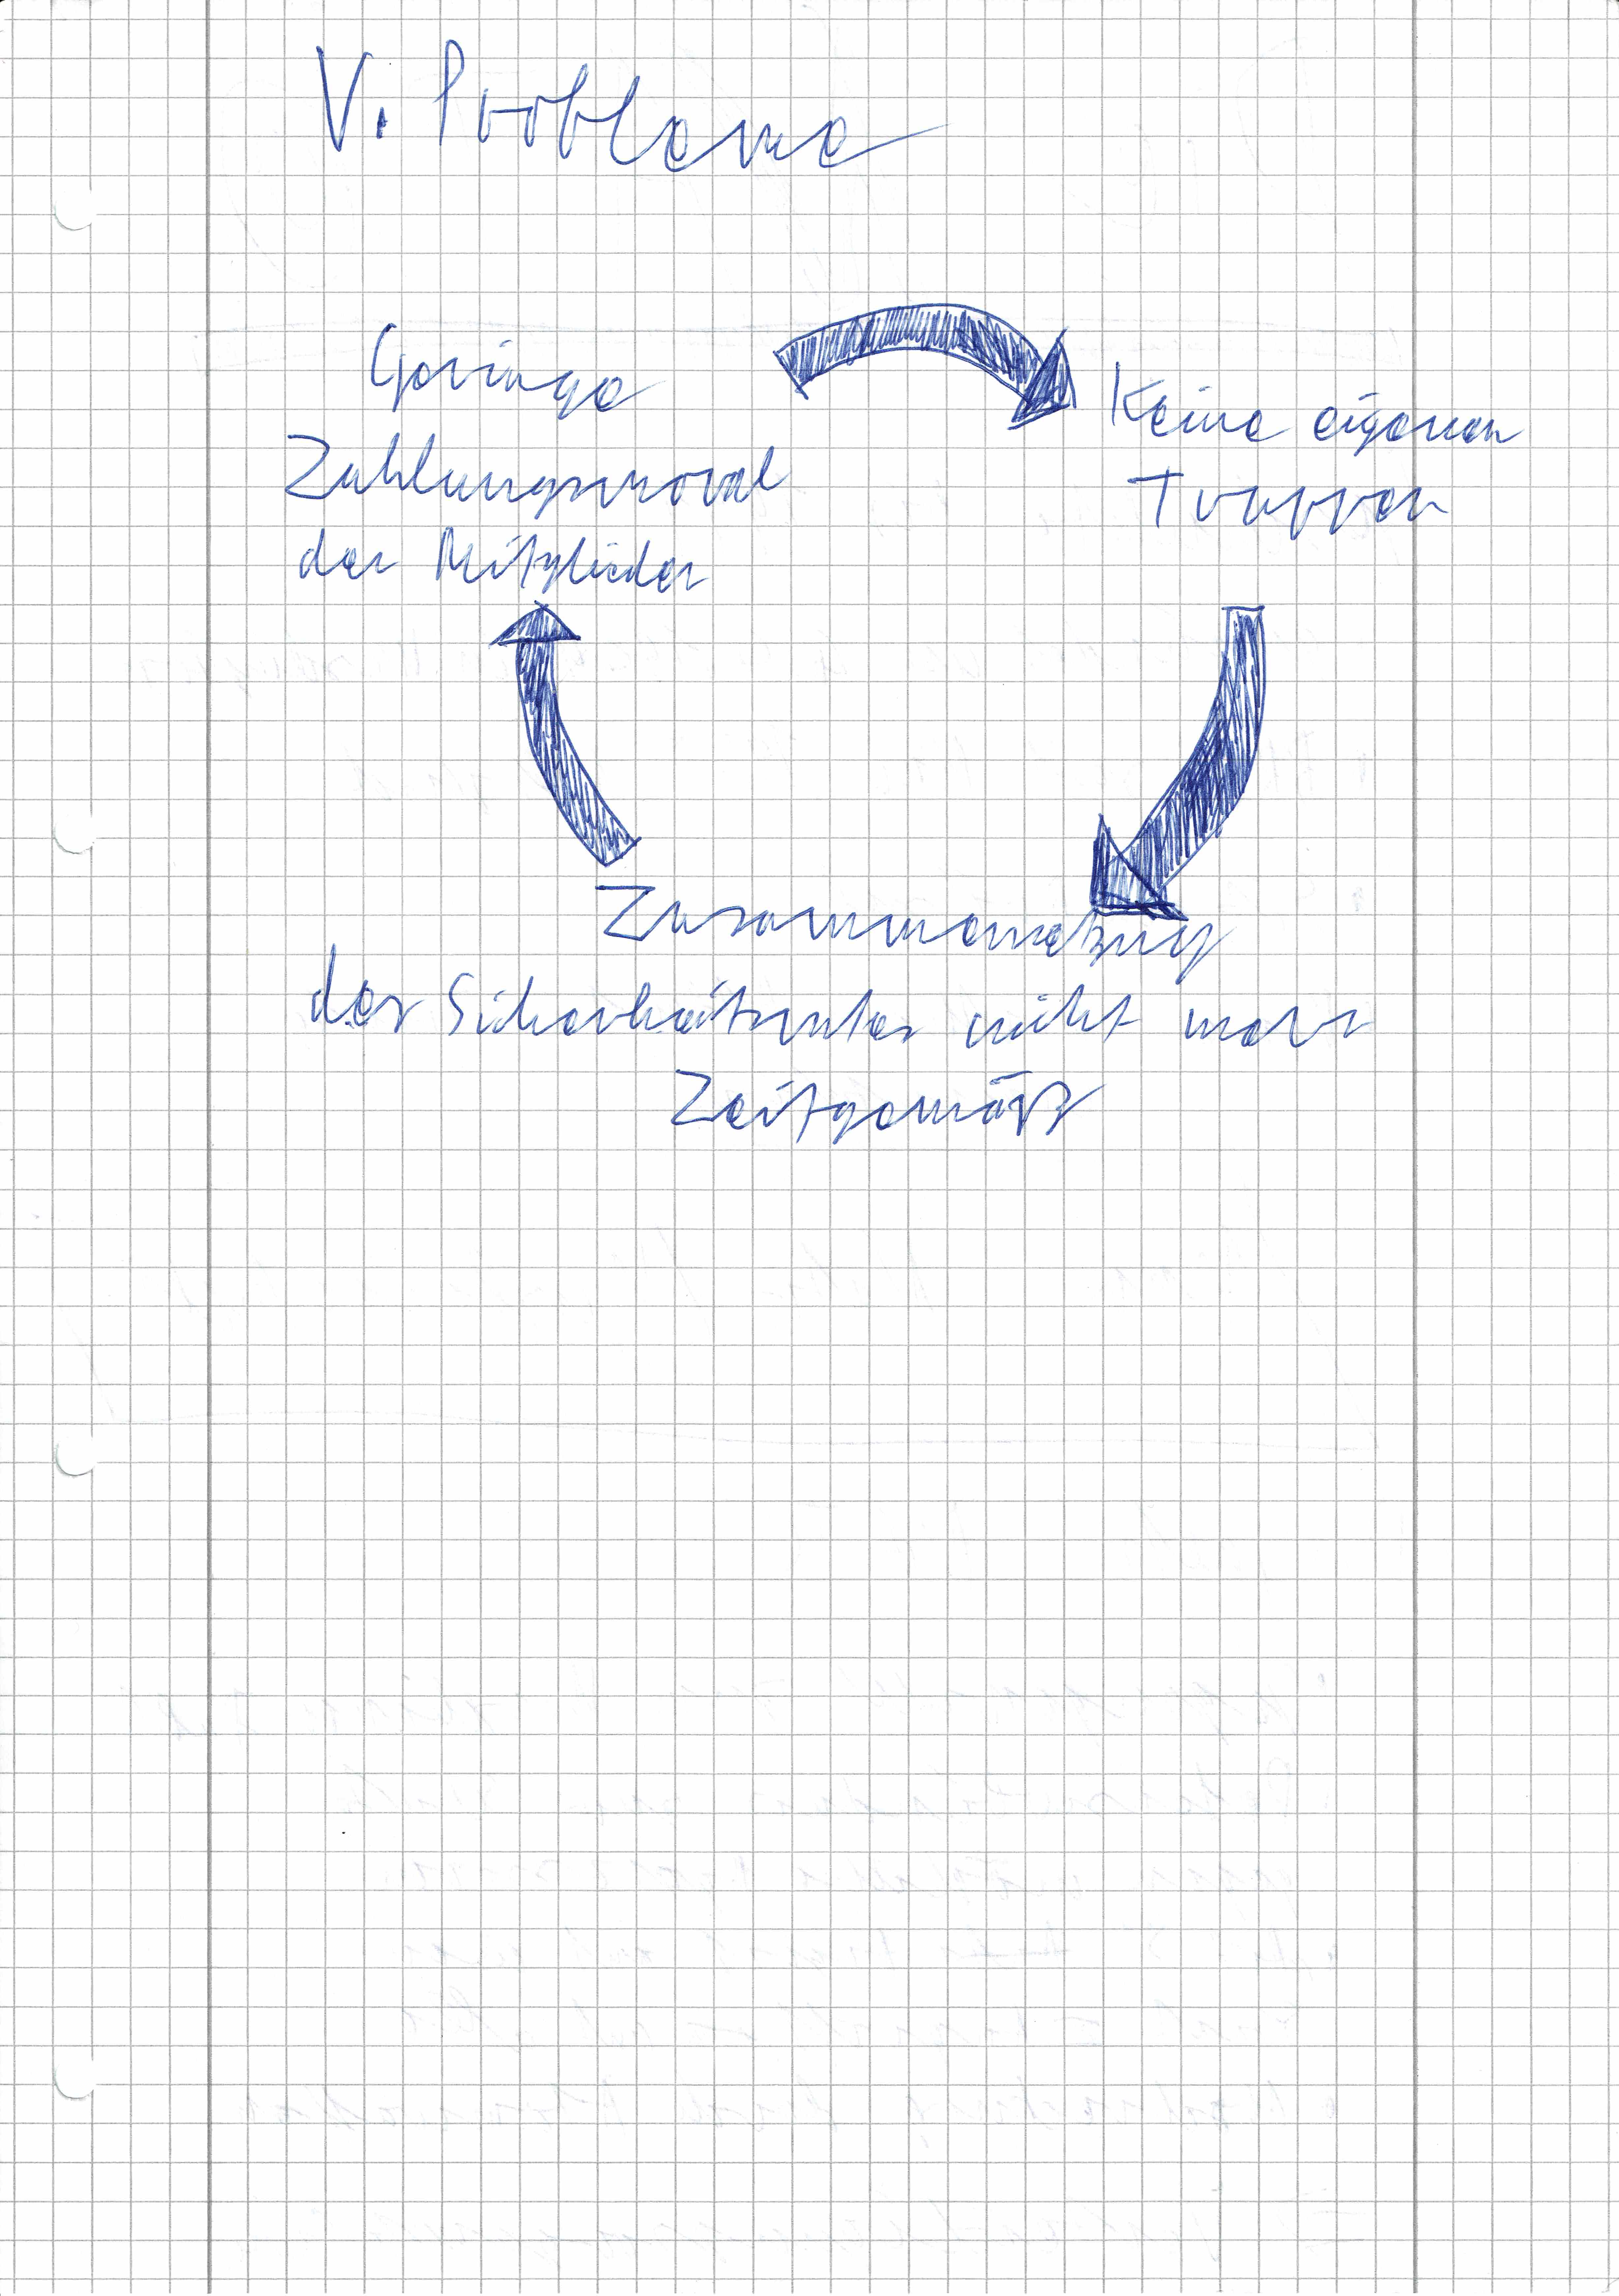 V. Probleme
Geringe
Zahlungsmoral
der Mitglieder
Keine eigenen
Truppen
der nicht mehr
Zeitgemäß